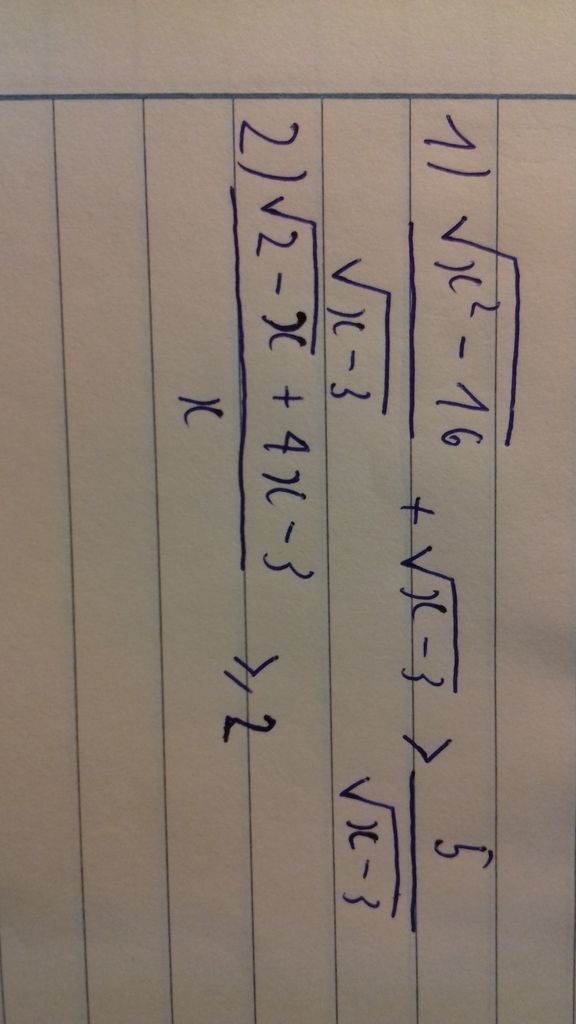 1) √(x² - 16) / √(x - 3) + √(x - 3) > 5 / √(x - 3)
2) (√(2 - x) + 4x - 3) / x ≥ 2